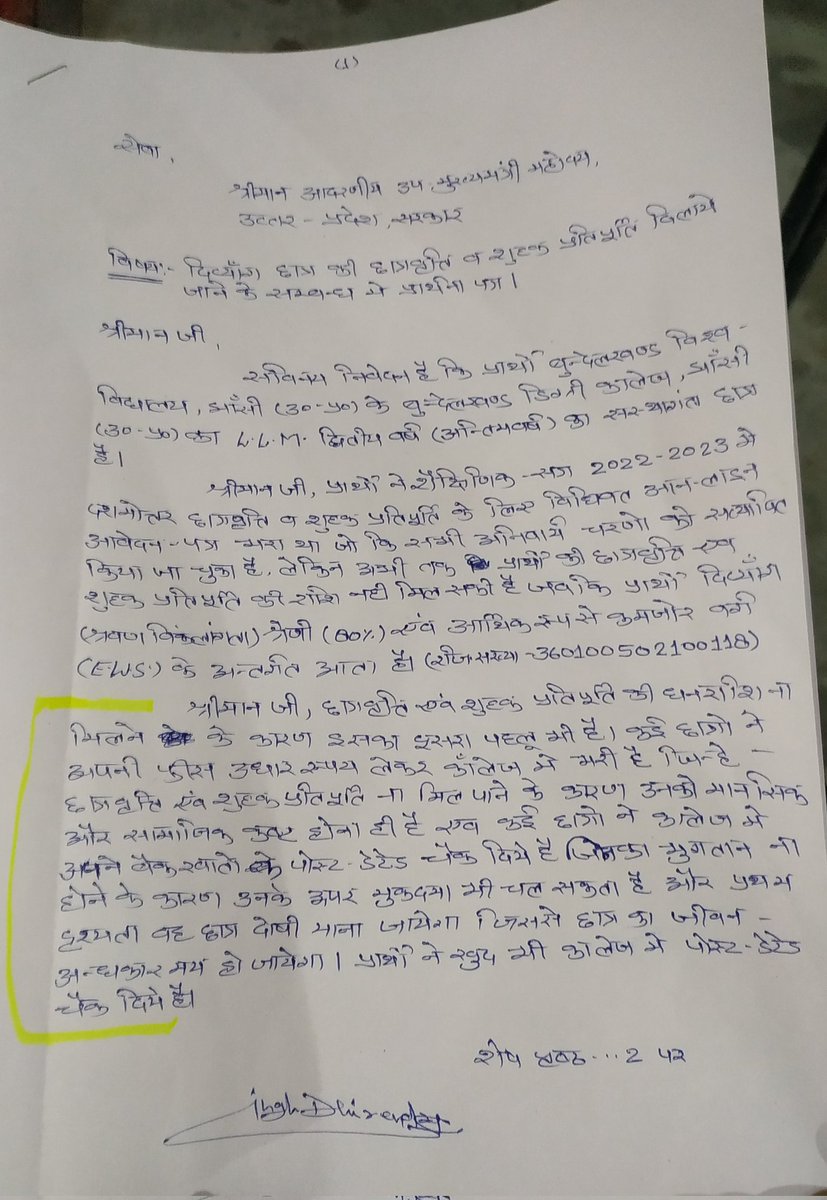 (1)
सेवा,
श्रीमान आदरणीय उप मुख्यमंत्री महोदय,
उत्तर - प्रदेश, सरकार
विषय:- दिव्याँग छात्र की छात्रवृत्ति व शुल्क प्रतिपूर्ति दिलाये
जाने के सम्बन्ध मे प्रार्थना पत्र।
श्रीमान जी,
सविनय निवेदन है कि प्रार्थी बुन्देलखण्ड विश्व -
विद्यालय, झाँसी (उ०-प्र०) के बुन्देलखण्ड डिग्री कालेज, झाँसी
(उ०-प्र०) का L.L.M. द्वितीय वर्ष (अन्तिमवर्ष) का संस्थागत छात्र
है।
श्रीमान जी, प्रार्थी ने शैक्षिणिक-सत्र 2022-2023 मे
दशमोत्तर छात्रवृत्ति व शुल्क प्रतिपूर्ति के लिए विधिवत ऑन-लाइन
आवेदन-पत्र भरा था जो कि सभी अनिवार्य चरणो को सत्यापित
किया जा चुका है, लेकिन अभी तक प्रार्थी को छात्रवृत्ति एवं
शुल्क प्रतिपूर्ति की राशि नही मिल सकी है जबकि प्रार्थी दिव्याँग
(श्रवण विकलांगता)-श्रेणी (80%) एवं आर्थिक रूप से कमजोर वर्ग
(EWS.) के अन्तर्गत आता है। (रजि.संख्या-360100502100118)
श्रीमान जी, छात्रवृत्ति एवं शुल्क प्रतिपूर्ति की धनराशि ना
मिलने के कारण इसका दूसरा पहलू भी है। कई छात्रो ने
अपनी फीस उधार रूपय लेकर कॉलेज मे भरी है जिन्हे -
छात्रवृत्ति एवं शुल्क प्रतिपूर्ति ना मिल पाने के कारण उनको मानसिक
और सामाजिक कष्ट होना ही है एवं कई छात्रो ने कालेज मे
अपने बैंक खाते के पोस्ट-डेटेड चैक दिये है जिनका भुगतान ना
होने के कारण उनके ऊपर मुकदमा भी चल सकता है और प्रथम
दृश्यता वह छात्र दोषी माना जायेगा जिससे छात्र का जीवन -
अन्धकार मय हो जायेगा। प्रार्थी ने खुद भी कालेज मे पोस्ट-डेटेड
चैक दिये है।
शेष पृष्ठ...2 पर